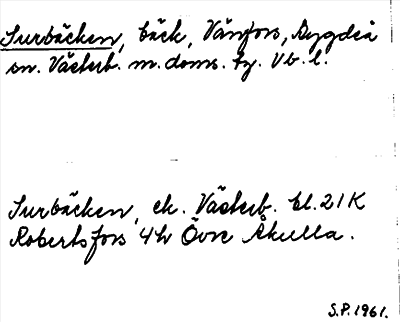 Surbäcken, bäck, Vänfors, Bygdeå
sn. Västerb. m. doms. tg. Vb. l.
Surbäcken, ek. Västerb. bl. 21K
Robertsfors 4h Övre Åkulla.
S.P. 1961.